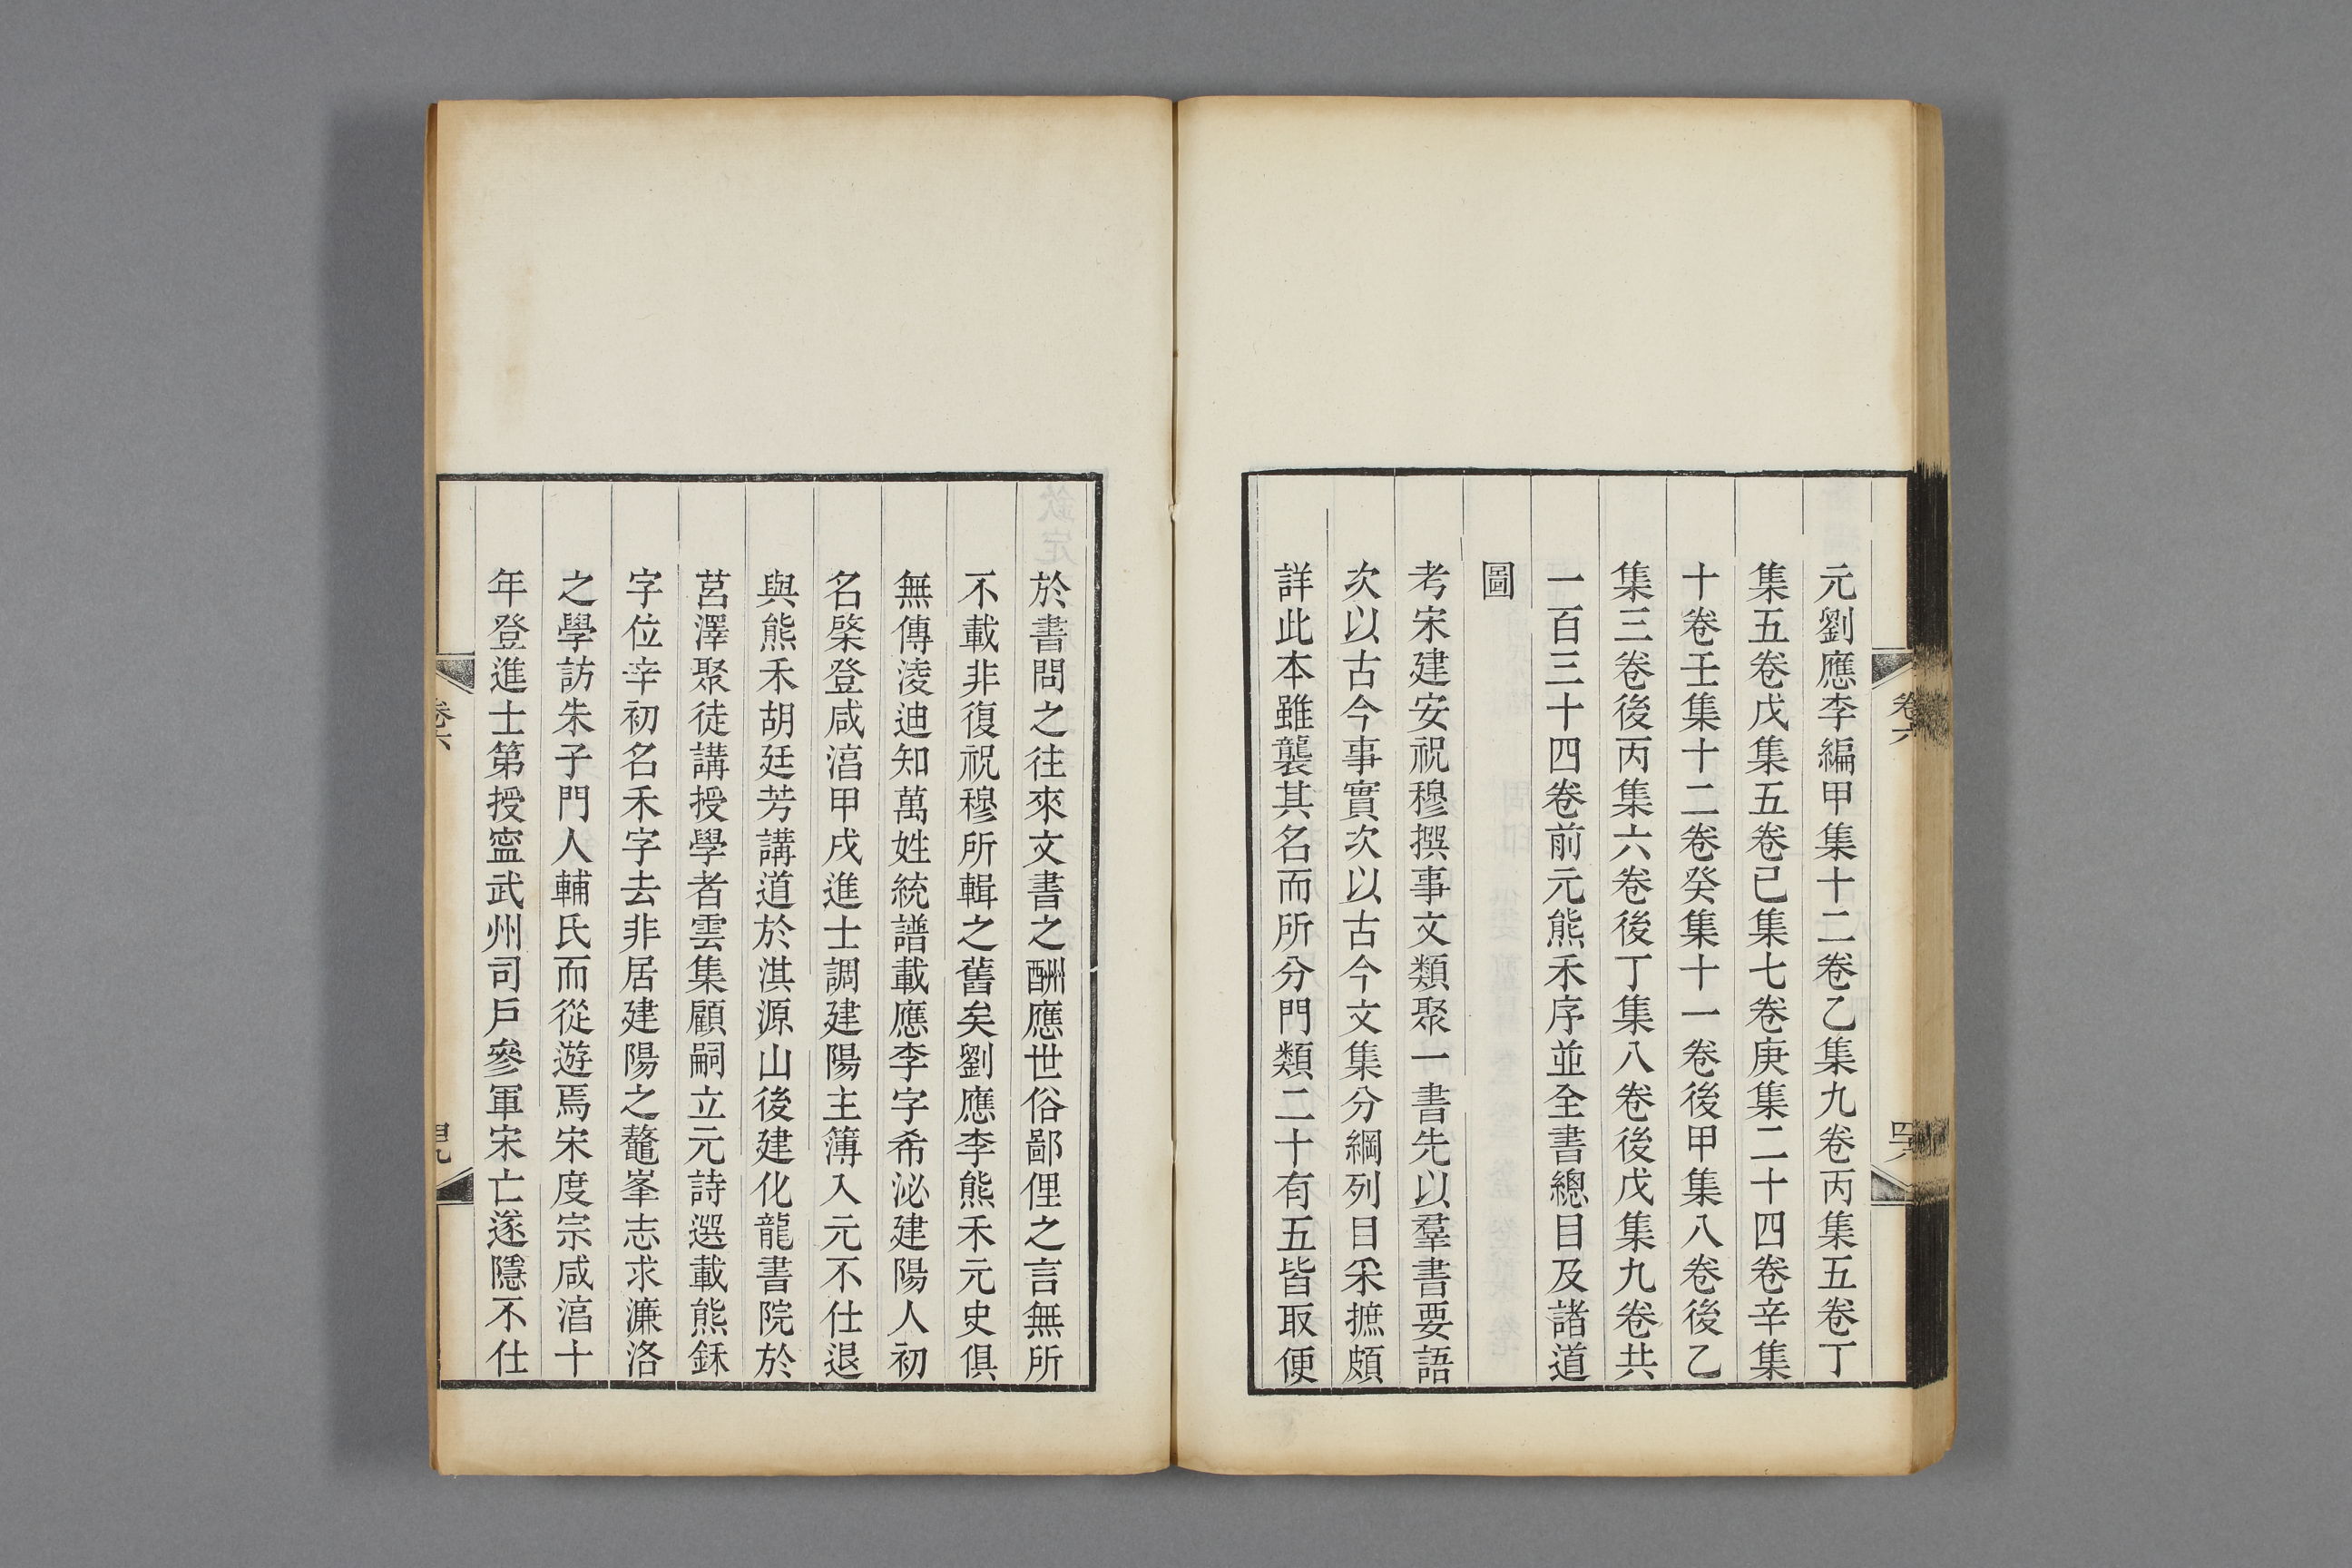 元劉應李編甲集十二卷乙集九卷丙集五卷丁
集五卷戊集五卷己集七卷庚集二十四卷辛集
十卷壬集十二卷癸集十一卷後甲集八卷後乙
集三卷後丙集六卷後丁集八卷後戊集九卷共
一百三十四卷前元熊禾序並全書總目及諸道
圖
考宋建安祝穆撰事文類聚一書先以羣書要語
次以古今事實次以古今文集分綱列目采摭頗
詳此本雖襲其名而所分門類二十有五皆取便
卷六
四八
於書問之往來文書之酬應世俗鄙俚之言無所
不載非復祝穆所輯之舊矣劉應李熊禾元史俱
無傳淩迪知萬姓統譜載應李字希泌建陽人初
名棨登咸湻甲戌進士調建陽主簿入元不仕退
與熊禾胡廷芳講道於淇源山後建化龍書院於
莒澤聚徒講授學者雲集顧嗣立元詩選載熊鉌
字位辛初名禾字去非居建陽之鼇峯志求濂洛
之學訪朱子門人輔氏而從遊焉宋度宗咸湻十
年登進士第授寍武州司戶參軍宋亡遂隱不仕
卷六
四九